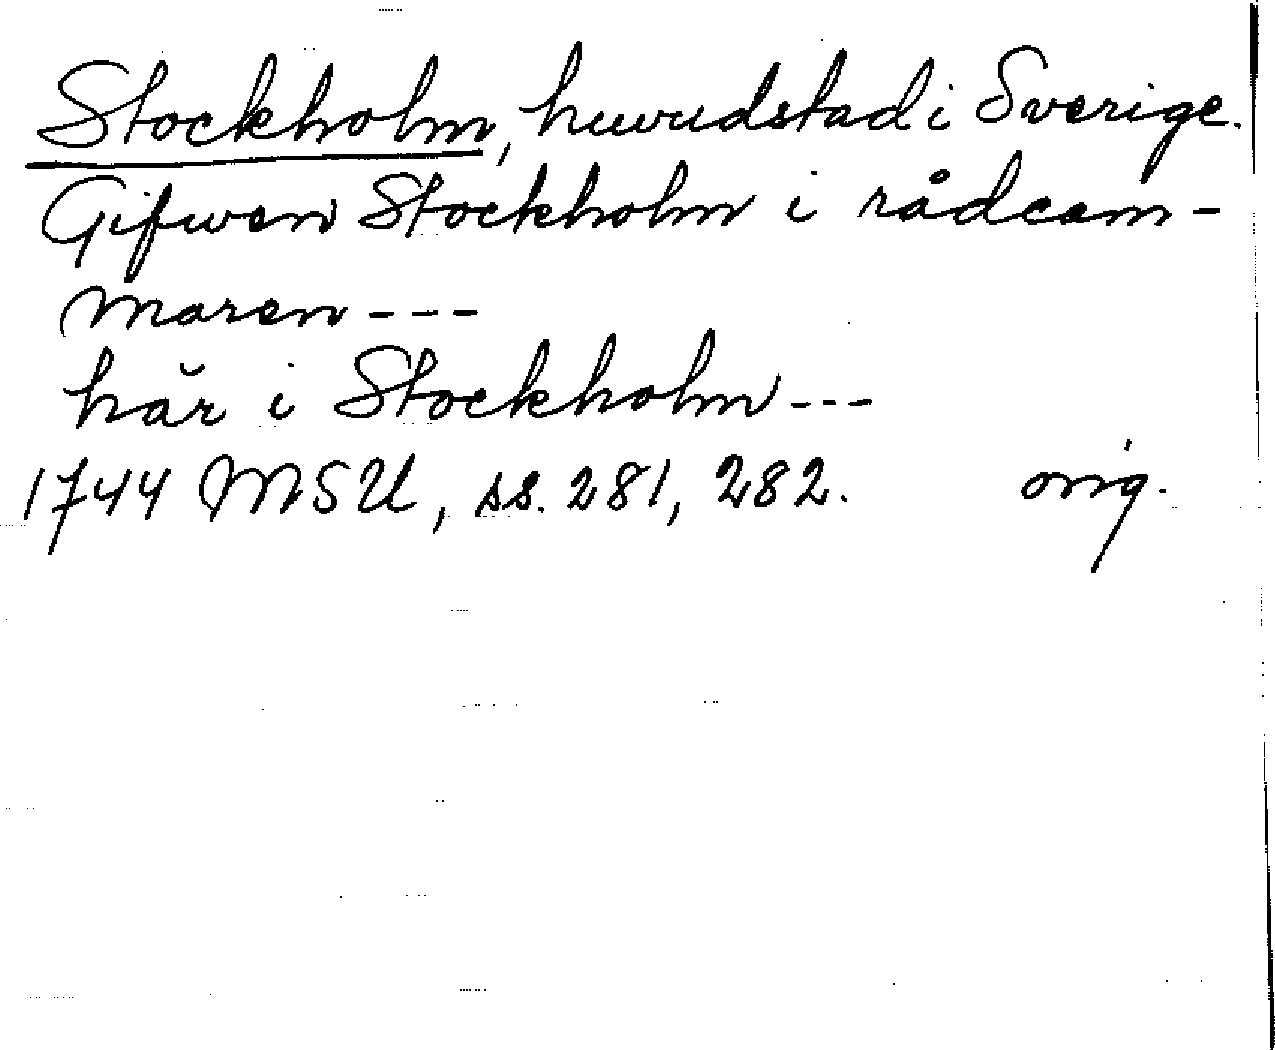 Stockholm, huvudstad i Sverige.
Gifwen Stockholm i rådcam-
maren---
här i Stockholm---
1744 MSU, ss. 281, 282. orig.